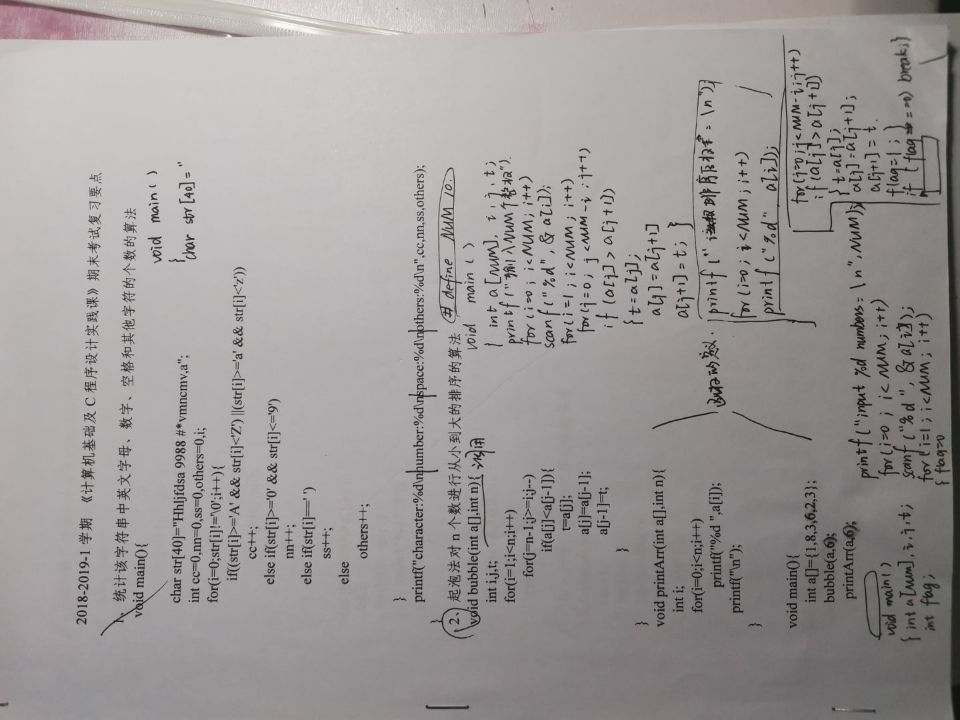 2018-2019-1 学期 《计算机基础及 C 程序设计实践课》期末考试复习要点
1、统计该字符串中英文字母、数字、空格和其他字符的个数的算法
void main(){
char str[40]="Hhljfdsa 9988 #*vmncmv,a";
int cc=0,nn=0,ss=0,others=0,i;
for(i=0;str[i]!='\0';i++){
if((str[i]>='A' && str[i]<'Z') ||(str[i]>='a' && str[i]<'z'))
cc++;
else if(str[i]>='0' && str[i]<='9')
nn++;
else if(str[i]==' ')
ss++;
else
others++;
}
printf("character:%d\nnumber:%d\nspace:%d\nothers:%d\n",cc,nn,ss,others);
}
void main()
{
char str[40]="
2、起泡法对 n 个数进行从小到大的排序的算法
void bubble(int a[],int n){
int i,j,t;
for(i=1;i<n;i++)
for(j=n-1;j>=i;j--)
if(a[j]<a[j-1]){
t=a[j];
a[j]=a[j-1];
a[j-1]=t;
}
}
void printArr(int a[],int n){
int i;
for(i=0;i<n;i++)
printf("%d ",a[i]);
printf("\n");
}
void main(){
int a[]={1,8,3,6,2,3};
bubble(a,6);
printArr(a,6);
}
# define NUM 10
void main()
{ int a[NUM], i, j, t;
printf("输入NUM个整数");
for(i=0; i<NUM; i++)
scanf("%d", &a[i]);
for(i=1; i<NUM; i++)
for(j=0; j<NUM-i; j++)
if(a[j]>a[j+1])
{ t=a[j];
a[j]=a[j+1]
a[j+1]=t; }
for(i=0; i<NUM; i++)
printf("%d" a[i]);
}
void main()
{ int a[NUM], i, j, t;
int flag;
printf("input %d numbers: \n", NUM);
for(i=0; i<NUM; i++)
scanf("%d", &a[i]);
for(i=1; i<NUM; i++)
{ flag=0
for(j=0; j<NUM-i; j++)
if(a[j]>a[j+1])
{ t=a[j];
a[j]=a[j+1];
a[j+1]=t.
flag=1; }
if(flag==0) break;}